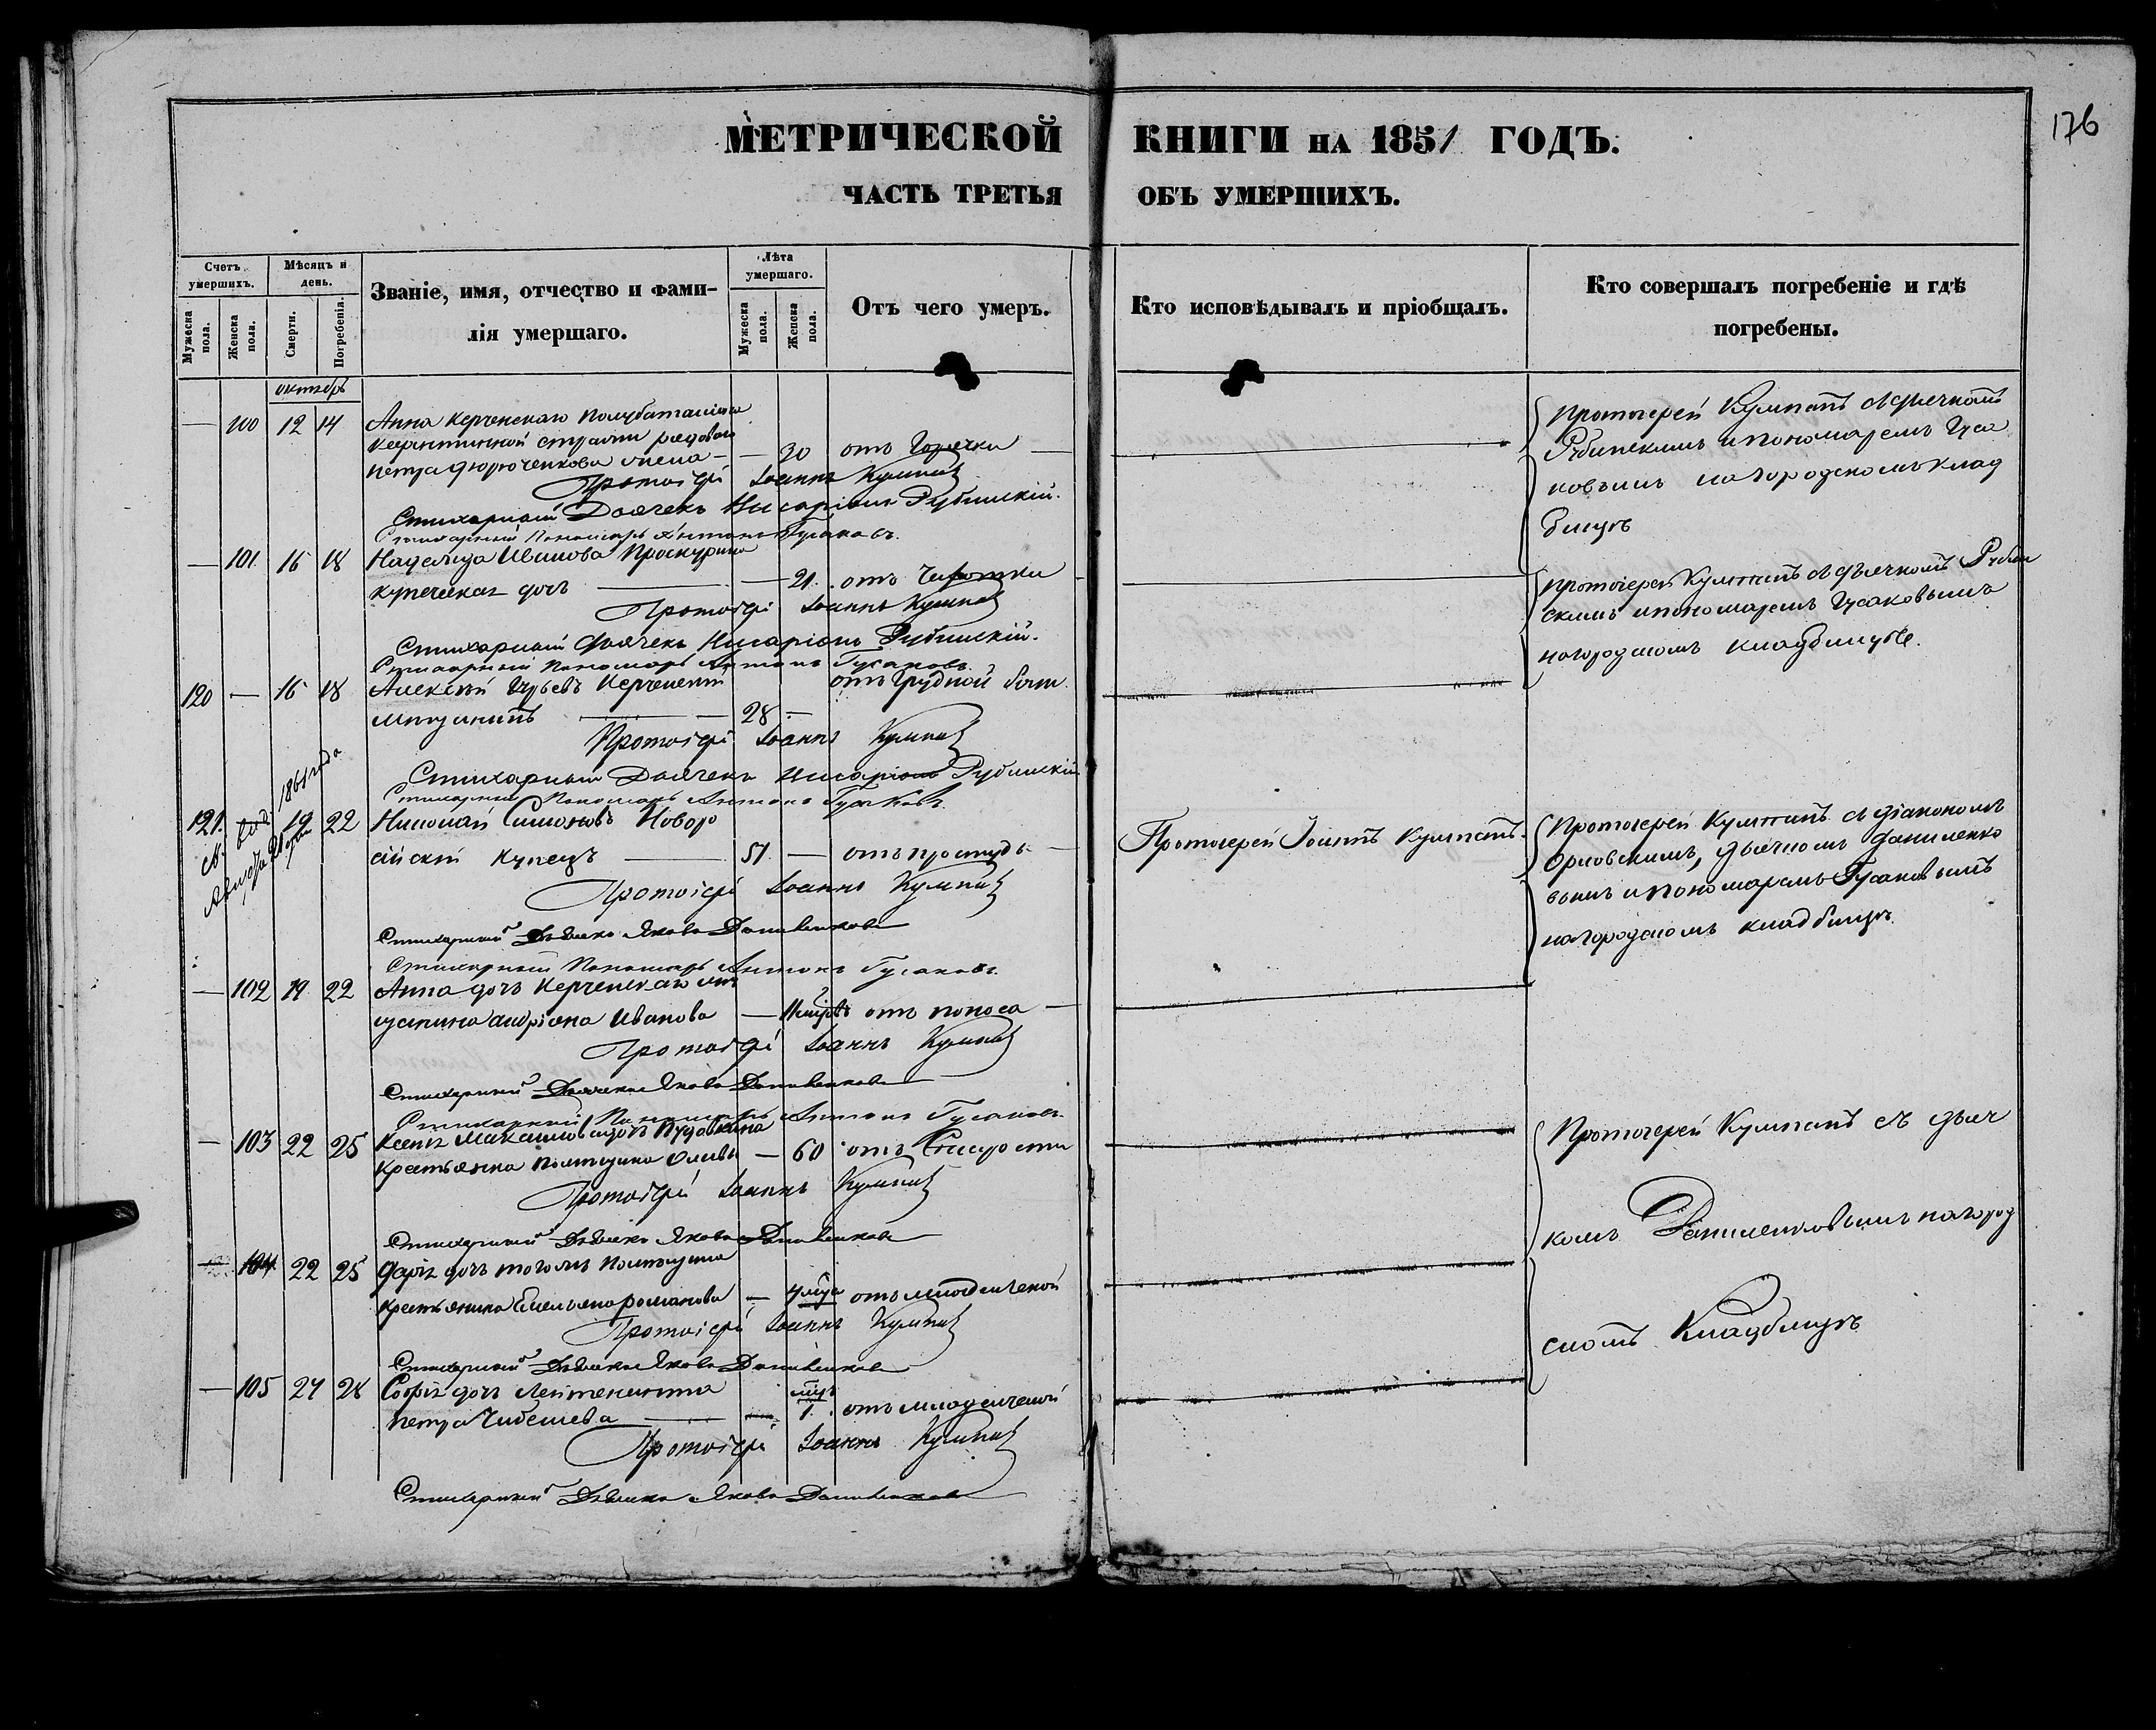 176
МЕТРИЧЕСКОЙ КНИГИ НА 1851 ГОДЪ.
ЧАСТЬ ТРЕТЬЯ ОБЪ УМЕРШИХЪ.
Счетъ умершихъ.
Мужеска пола.
Женска пола.
Мѣсяцъ и день.
Смерти.
Погребенія.
Званіе, имя, отчество и фами-
лія умершаго.
Лѣта умершаго.
Мужеска пола.
Женска пола.
Отъ чего умеръ.
Кто исповѣдывалъ и пріобщалъ.
Кто совершалъ погребеніе и гдѣ
погребены.
октябрь
— 100 12 14 Анна Керченскаго Полубаталіона
Карантинной стражи рядоваго
Петра жена — — 30 отъ Горячки —
Протоіерей Іоаннъ Кумпанъ
Стихарный Дьячекъ Иларіонъ Рубинскій.
Стихарный Пономарь Антонъ Гусаковъ.
Протоіерей Кумпанъ съ дьячкомъ
Рубинскимъ и пономаремъ Гуса
ковымъ на городскомъ клад
бищѣ
— 101 16 18 Надежда Иванова Проскурина
купеческая дочь — — 21. отъ Чахотки
Протоіерей Іоаннъ Кумпанъ
Стихарный Дьячекъ Иларіонъ Рубинскій.
Стихарный Пономарь Антонъ Гусаковъ.
Протоіерей Кумпанъ съ дьячкомъ Рубин
скимъ и пономаремъ Гусаковымъ
на городскомъ кладбищѣ.
120 — 16 18 Алексѣй Юрьевъ Керченскій отъ Грудной бол.
мѣщанинъ — 28 —
Протоіерей Іоаннъ Кумпанъ
Стихарный Дьячекъ Иларіонъ Рубинскій
Стихарный Пономарь Антонъ Гусаковъ
1861 года
121. 19 22 Николай Симоновъ Новоро
сійскій Купецъ — 51. — отъ простуды —
Протоіерей Іоаннъ Кумпанъ
Стихарный Дьячекъ Яковъ Даниленковъ
Стихарный Пономарь Антонъ Гусаковъ.
Протоіерей Іоаннъ Кумпанъ.
Протоіерей Кумпанъ съ діакономъ
Орловскимъ, дьячкомъ Даниленко
вымъ и пономаремъ Гусаковымъ
на городскомъ кладбищѣ.
— 102 19 22 Анна дочь Керченскаго мѣ
щанина Андріяна Иванова — отъ поноса —
Протоіерей Іоаннъ Кумпанъ
Стихарный Дьячекъ Яковъ Даниленковъ
Стихарный Пономарь Антонъ Гусаковъ.
— 103 22 25 Ксенія Максимова
крестьянка помѣщика — 60 отъ Старости
Протоіерей Іоаннъ Кумпанъ
Стихарный Дьячекъ Яковъ Даниленковъ
Протоіерей Кумпанъ съ дьяч
комъ Даниленковымъ на город
скомъ Кладбищѣ
— 104 22 25 Дарія дочь того же помѣщика
крестьянина Емельяна Романова — отъ младенческой
Протоіерей Іоаннъ Кумпанъ
Стихарный Дьячекъ Яковъ Даниленковъ
— 105 27 28 Софія дочь Лейтенанта
Петра — — 1. отъ младенческой
Протоіерей Іоаннъ Кумпанъ
Стихарный Дьячекъ Яковъ Даниленковъ